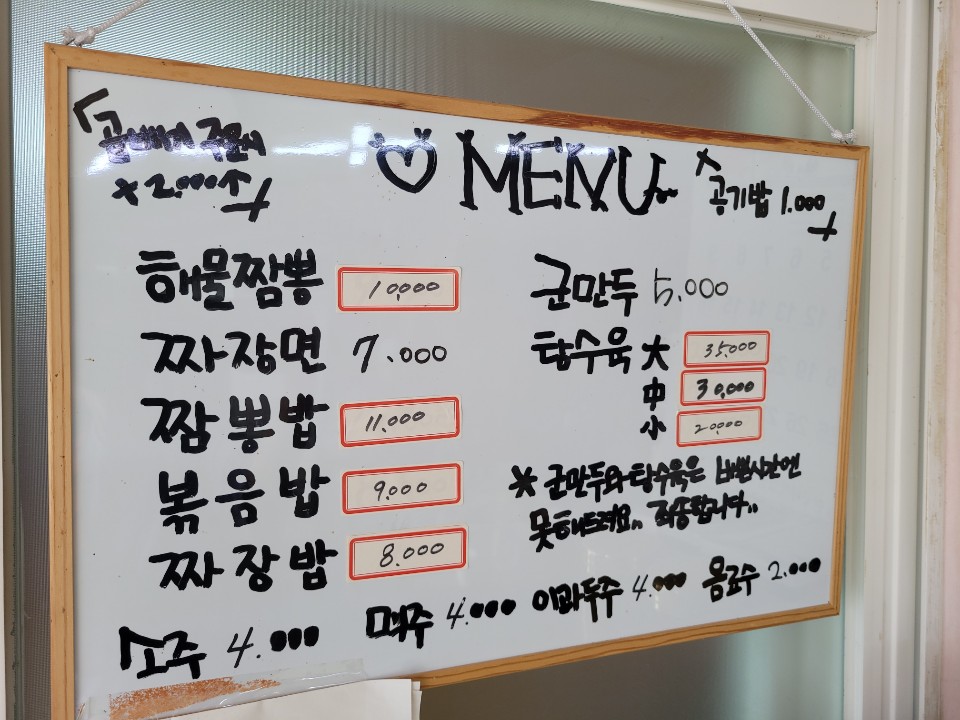 곱빼기 주문시
+2.000
♡ MENU
공기밥 1.000
해물짬뽕 10,000
짜장면 7.000
짬뽕밥 11.000
볶음밥 9.000
짜장밥 8.000
군만두 5.000
탕수육 大 35.000
中 30,000
小 20,000
* 군만두와 탕수육은 바쁜시간엔
못해드려요.. 죄송합니다..
소주 4.000 맥주 4.000 이과두주 4.000 음료수 2.000